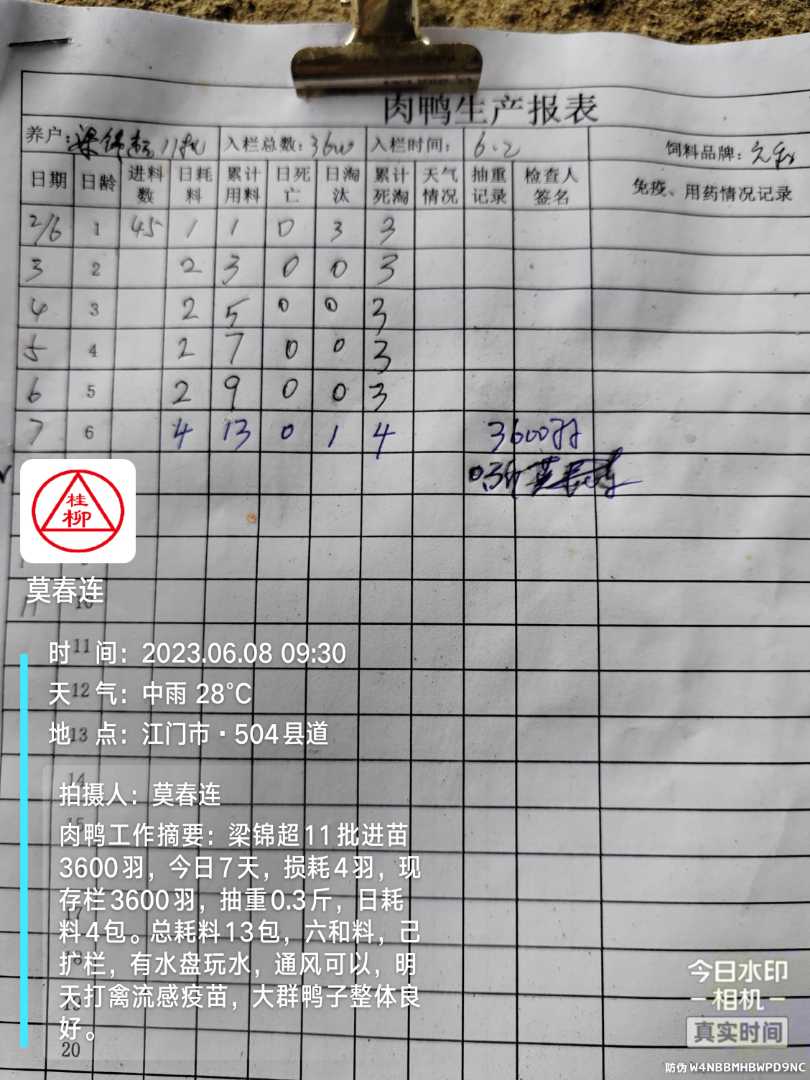 肉鸭生产报表
养户:梁锦超11批 入栏总数:3600 入栏时间: 6.2 饲料品牌:六和
日期 日龄 进料数 日耗料 累计用料 日死亡 日淘汰 累计死淘 天气情况 抽重记录 检查人签名 免疫、用药情况记录
2/6 1 45 1 1 0 3 3
3 2 2 3 0 0 3
4 3 2 5 0 0 3
5 4 2 7 0 0 3
6 5 2 9 0 0 3
7 6 4 13 0 1 4 3600羽
0.3斤 莫春连
桂柳
莫春连
10
时 间：2023.06.08 09:30
11
天 气：中雨 28℃
12
地 点：江门市·504县道
13
14
拍摄人：莫春连
肉鸭工作摘要：梁锦超11批进苗
3600羽，今日7天，损耗4羽，现
存栏3600羽，抽重0.3斤，日耗
料4包。总耗料13包，六和料，己
扩栏，有水盘玩水，通风可以，明
天打禽流感疫苗，大群鸭子整体良
好。
20
今日水印
相机
真实时间
防伪 W4NBBMHBWPD9NC